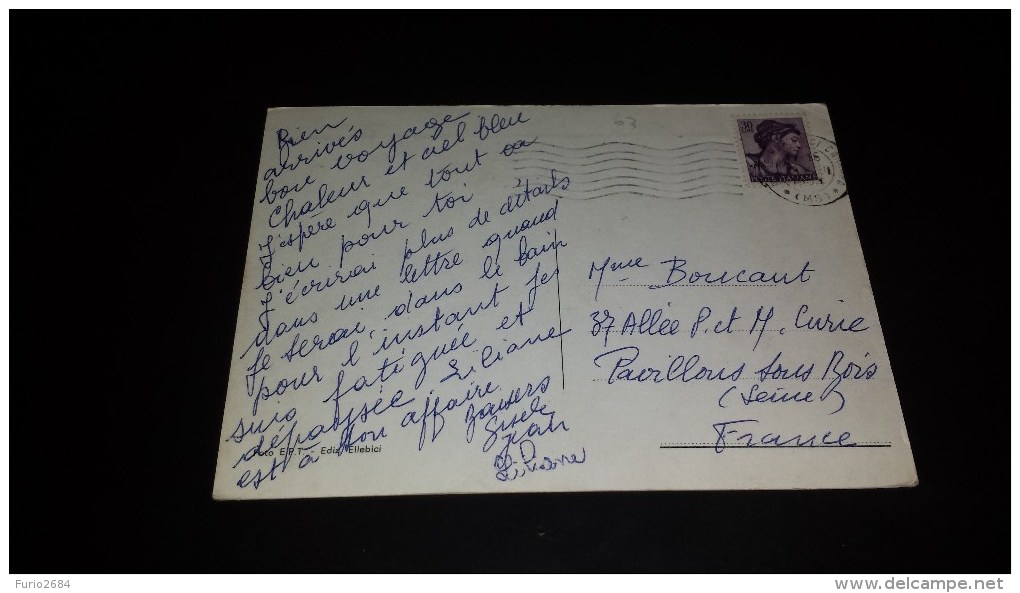 Bien
arrivés
bon voyage
Chaleur et ciel bleu
J'espère que tout va
bien pour toi
J'écrirai plus de détails
dans une lettre quand
je serai dans le bain
pour l'instant je
suis fatiguée et
dépaysée Liliane
est à son affaire
Baisers
Gisèle
Jean
Liliane
Foto E.P.T. - Ediz. Ellebici
63
30
(MS)
Mme Boucaut
37 Allée P. et M. Curie
Pavillons sous Bois
(Seine)
France
Furio2684
www.delcampe.net